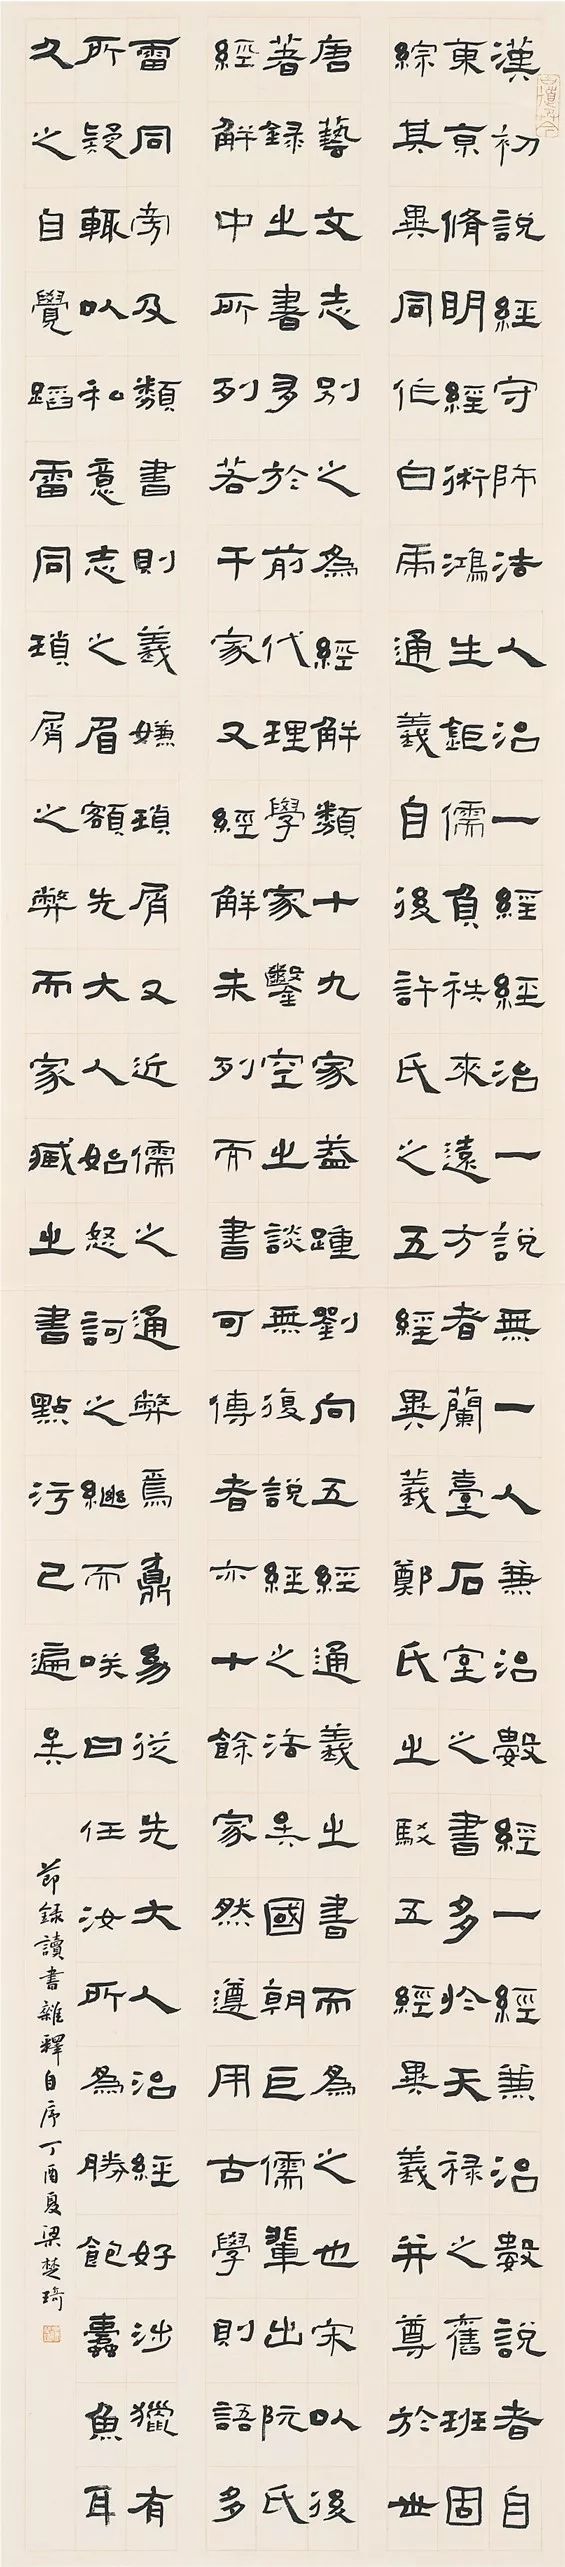 漢初說經守師法人治一經經治一說無一人兼治數經一經兼治數說者自
東京脩明經術鴻生鉅儒負袟來遠方者蘭臺石室之書多於天祿之舊班固
綜其異同作白虎通義自後許氏之五經異義鄭氏之駁五經異義并尊於世
唐藝文志別之為經解類十九家蓋踵劉向五經通義之書而為之也宋以後
著錄之書多於前代理學家鑿空之談無復說經之法矣國朝巨儒輩出阮氏
經解中所列若干家又經解未列而書可傳者亦十餘家然遵用古學則語多
雷同旁及類書則義嫌瑣屑又近儒之通弊焉鼒幼從先大人治經好涉獵有
所疑輒以私意志之眉額先大人始怒訶之繼而咲曰任汝所為勝飽蠹魚耳
久之自覺蹈雷同瑣屑之弊而家臧之書點污已遍矣
節錄讀書雜釋自序丁酉夏梁楚琦